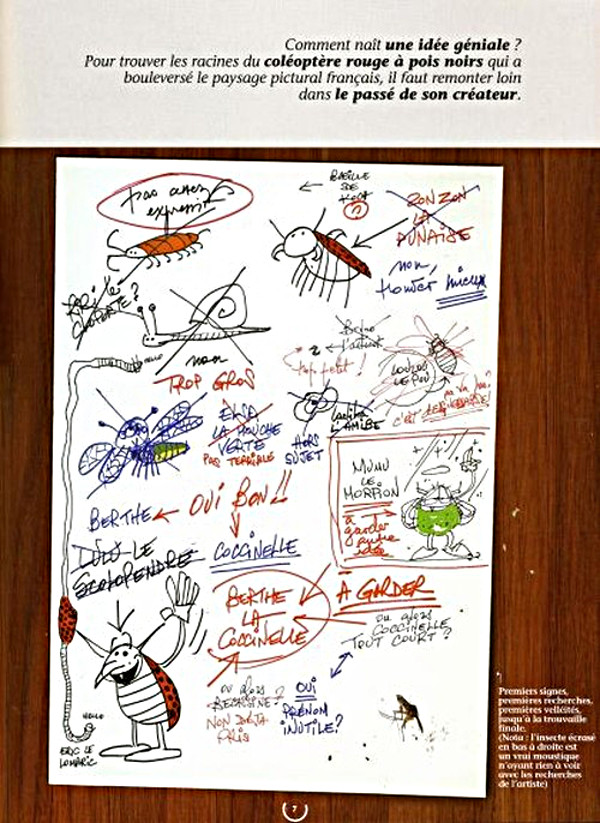 Comment naît une idée géniale ?
Pour trouver les racines du coléoptère rouge à pois noirs qui a
bouleversé le paysage pictural français, il faut remonter loin
dans le passé de son créateur.
pas assez
expressif
ZONZON
LA
PUNAISE
non,
trouver mieux
HELLO
non
TROP GROS
trop petit !
LOULOU
LE POU
ELSA
LA MOUCHE
VERTE
PAS TERRIBLE
L'AMIBE
HORS
SUJET
MUMU
LE
MORPION
à
garder
autre
idée
BERTHE
OUI BON !!
LULU LE
SCOLOPENDRE
COCCINELLE
BERTHE
LA
COCCINELLE
A GARDER
ou alors
COCCINELLE
TOUT COURT ?
ou alors
BECASSINE ?
NON DEJA
PRIS
OUI
PRÉNOM
INUTILE ?
HELLO
ERIC LE
LOMBRIC
Premiers signes,
premières recherches,
premières velléités,
jusqu'à la trouvaille
finale.
(Nota : l'insecte écrasé
en bas à droite est
un vrai moustique
n'ayant rien à voir
avec les recherches
de l'artiste)
7